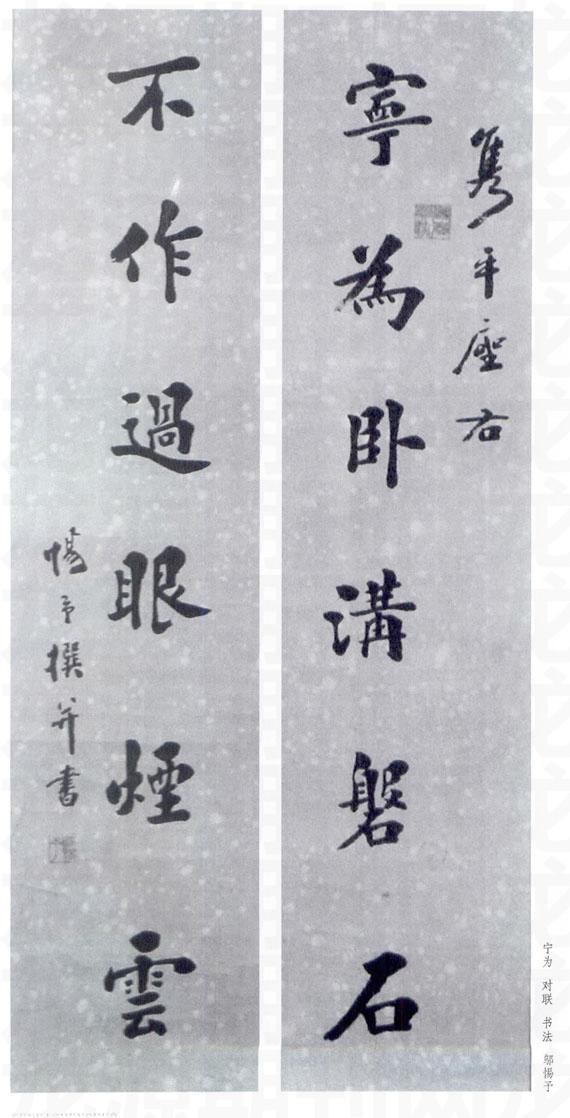 隽平座右
寧為卧溝磐石
不作過眼煙雲
惕予撰并書
宁为 对联 书法 邬惕予